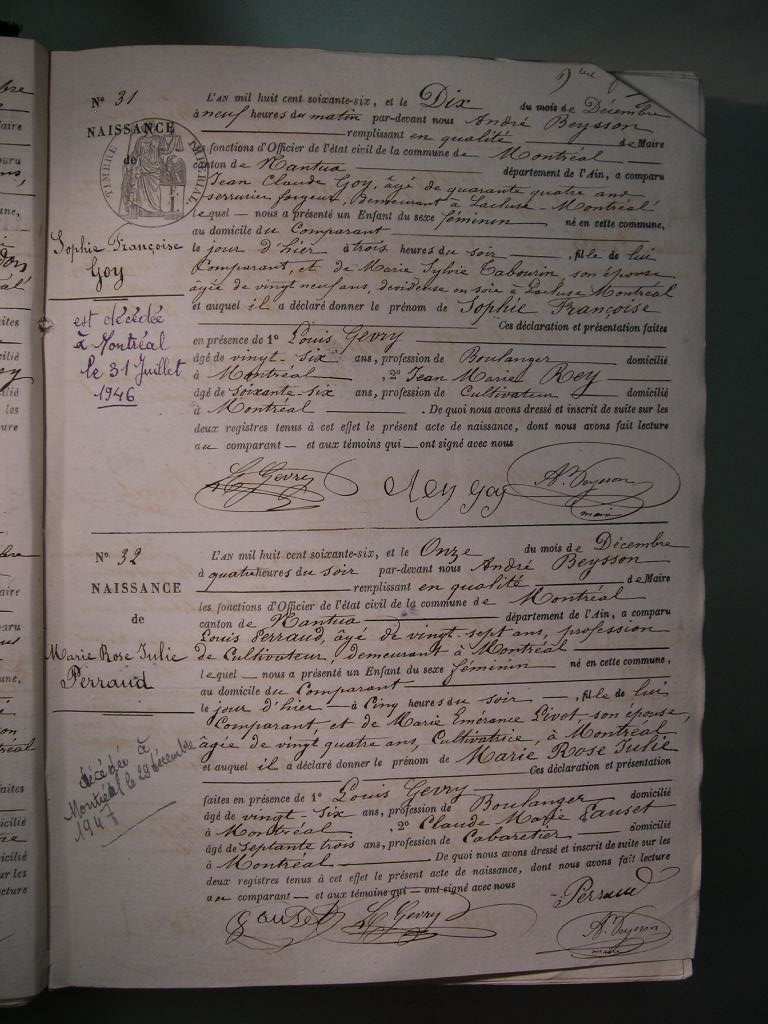 N° 31
NAISSANCE
de
TIMBRE IMPÉRIAL
Sophie Françoise
Goy
est décédée
à Montréal
le 31 Juillet
1946
L'AN mil huit cent soixante-six, et le Dix du mois de Décembre
à neuf heures du matin par-devant nous André Beysson
remplissant en qualité de Maire
les fonctions d'Officier de l'état civil de la commune de Montréal
canton de Nantua département de l'Ain, a comparu
Jean Claude Goy, âgé de quarante quatre ans
serrurier forgeur, Demeurant à Lacluse - Montréal
lequel nous a présenté un Enfant du sexe féminin né en cette commune,
au domicile du Comparant
le jour d'hier à trois heures du soir, fille de lui
Comparant, et de Marie Sylvie Tabourin, son épouse
âgée de vingt neuf ans, devideuse en soie à Lacluse Montréal
et auquel il a déclaré donner le prénom de Sophie Françoise
Ces déclaration et présentation faites
en présence de 1° Louis Gevry
âgé de vingt-six ans, profession de Boulanger domicilié
à Montréal, 2° Jean Marie Rey
âgé de soixante-six ans, profession de Cultivateur domicilié
à Montréal. De quoi nous avons dressé et inscrit de suite sur les
deux registres tenus à cet effet le présent acte de naissance, dont nous avons fait lecture
au comparant et aux témoins qui ont signé avec nous
L Gevry Rey Goy
maire
N° 32
NAISSANCE
de
Marie Rose Julie
Perraud
décédée à
Montréal le 28 décembre
L'AN mil huit cent soixante-six, et le Onze du mois de Décembre
à quatre heures du soir par-devant nous André Beysson
remplissant en qualité de Maire
les fonctions d'Officier de l'état civil de la commune de Montréal
canton de Nantua département de l'Ain, a comparu
Louis Perraud, âgé de vingt-sept ans, profession
de Cultivateur, demeurant à Montréal
lequel nous a présenté un Enfant du sexe féminin né en cette commune,
au domicile du Comparant
le jour d'hier à Cinq heures du soir, fille de lui
Comparant, et de Marie Emérance Pivot son épouse,
âgée de vingt quatre ans, Cultivatrice, à Montréal
et auquel il a déclaré donner le prénom de Marie Rose Julie
Ces déclaration et présentation
faites en présence de 1° Louis Gevry
âgé de vingt-six ans, profession de Boulanger domicilié
à Montréal, 2° Claude Marie Gauset
âgé de septante trois ans, profession de Cabaretier domicilié
à Montréal De quoi nous avons dressé et inscrit de suite sur les
deux registres tenus à cet effet le présent acte de naissance, dont nous avons fait lecture
au comparant et aux témoins qui ont signé avec nous
Perraud
Gauset L Gevry
maire